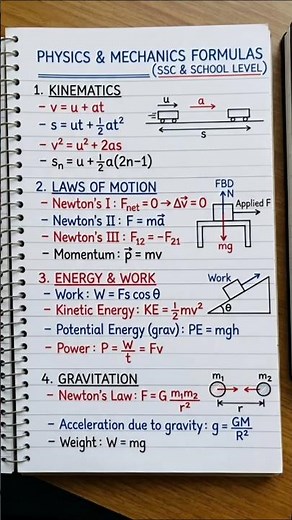 PHYSICS & MECHANICS FORMULAS
(SSC & SCHOOL LEVEL)
1. KINEMATICS
- v = u + at
- s = ut + ½at²
- v² = u² + 2as
- sₙ = u + ½a(2n−1)
u
a
s
2. LAWS OF MOTION
- Newton's I : Fnet = 0 → Δv⃗ = 0
- Newton's II : F = ma⃗
- Newton's III : F₁₂ = −F₂₁
- Momentum : p⃗ = mv
FBD
N
Applied F
mg
3. ENERGY & WORK
- Work : W = Fs cos θ
- Kinetic Energy : KE = ½mv²
- Potential Energy (grav) : PE = mgh
- Power : P = W/t = Fv
Work
θ
4. GRAVITATION
- Newton's Law : F = G m₁m₂/r²
- Acceleration due to gravity : g = GM/R²
- Weight : W = mg
m₁ m₂
r